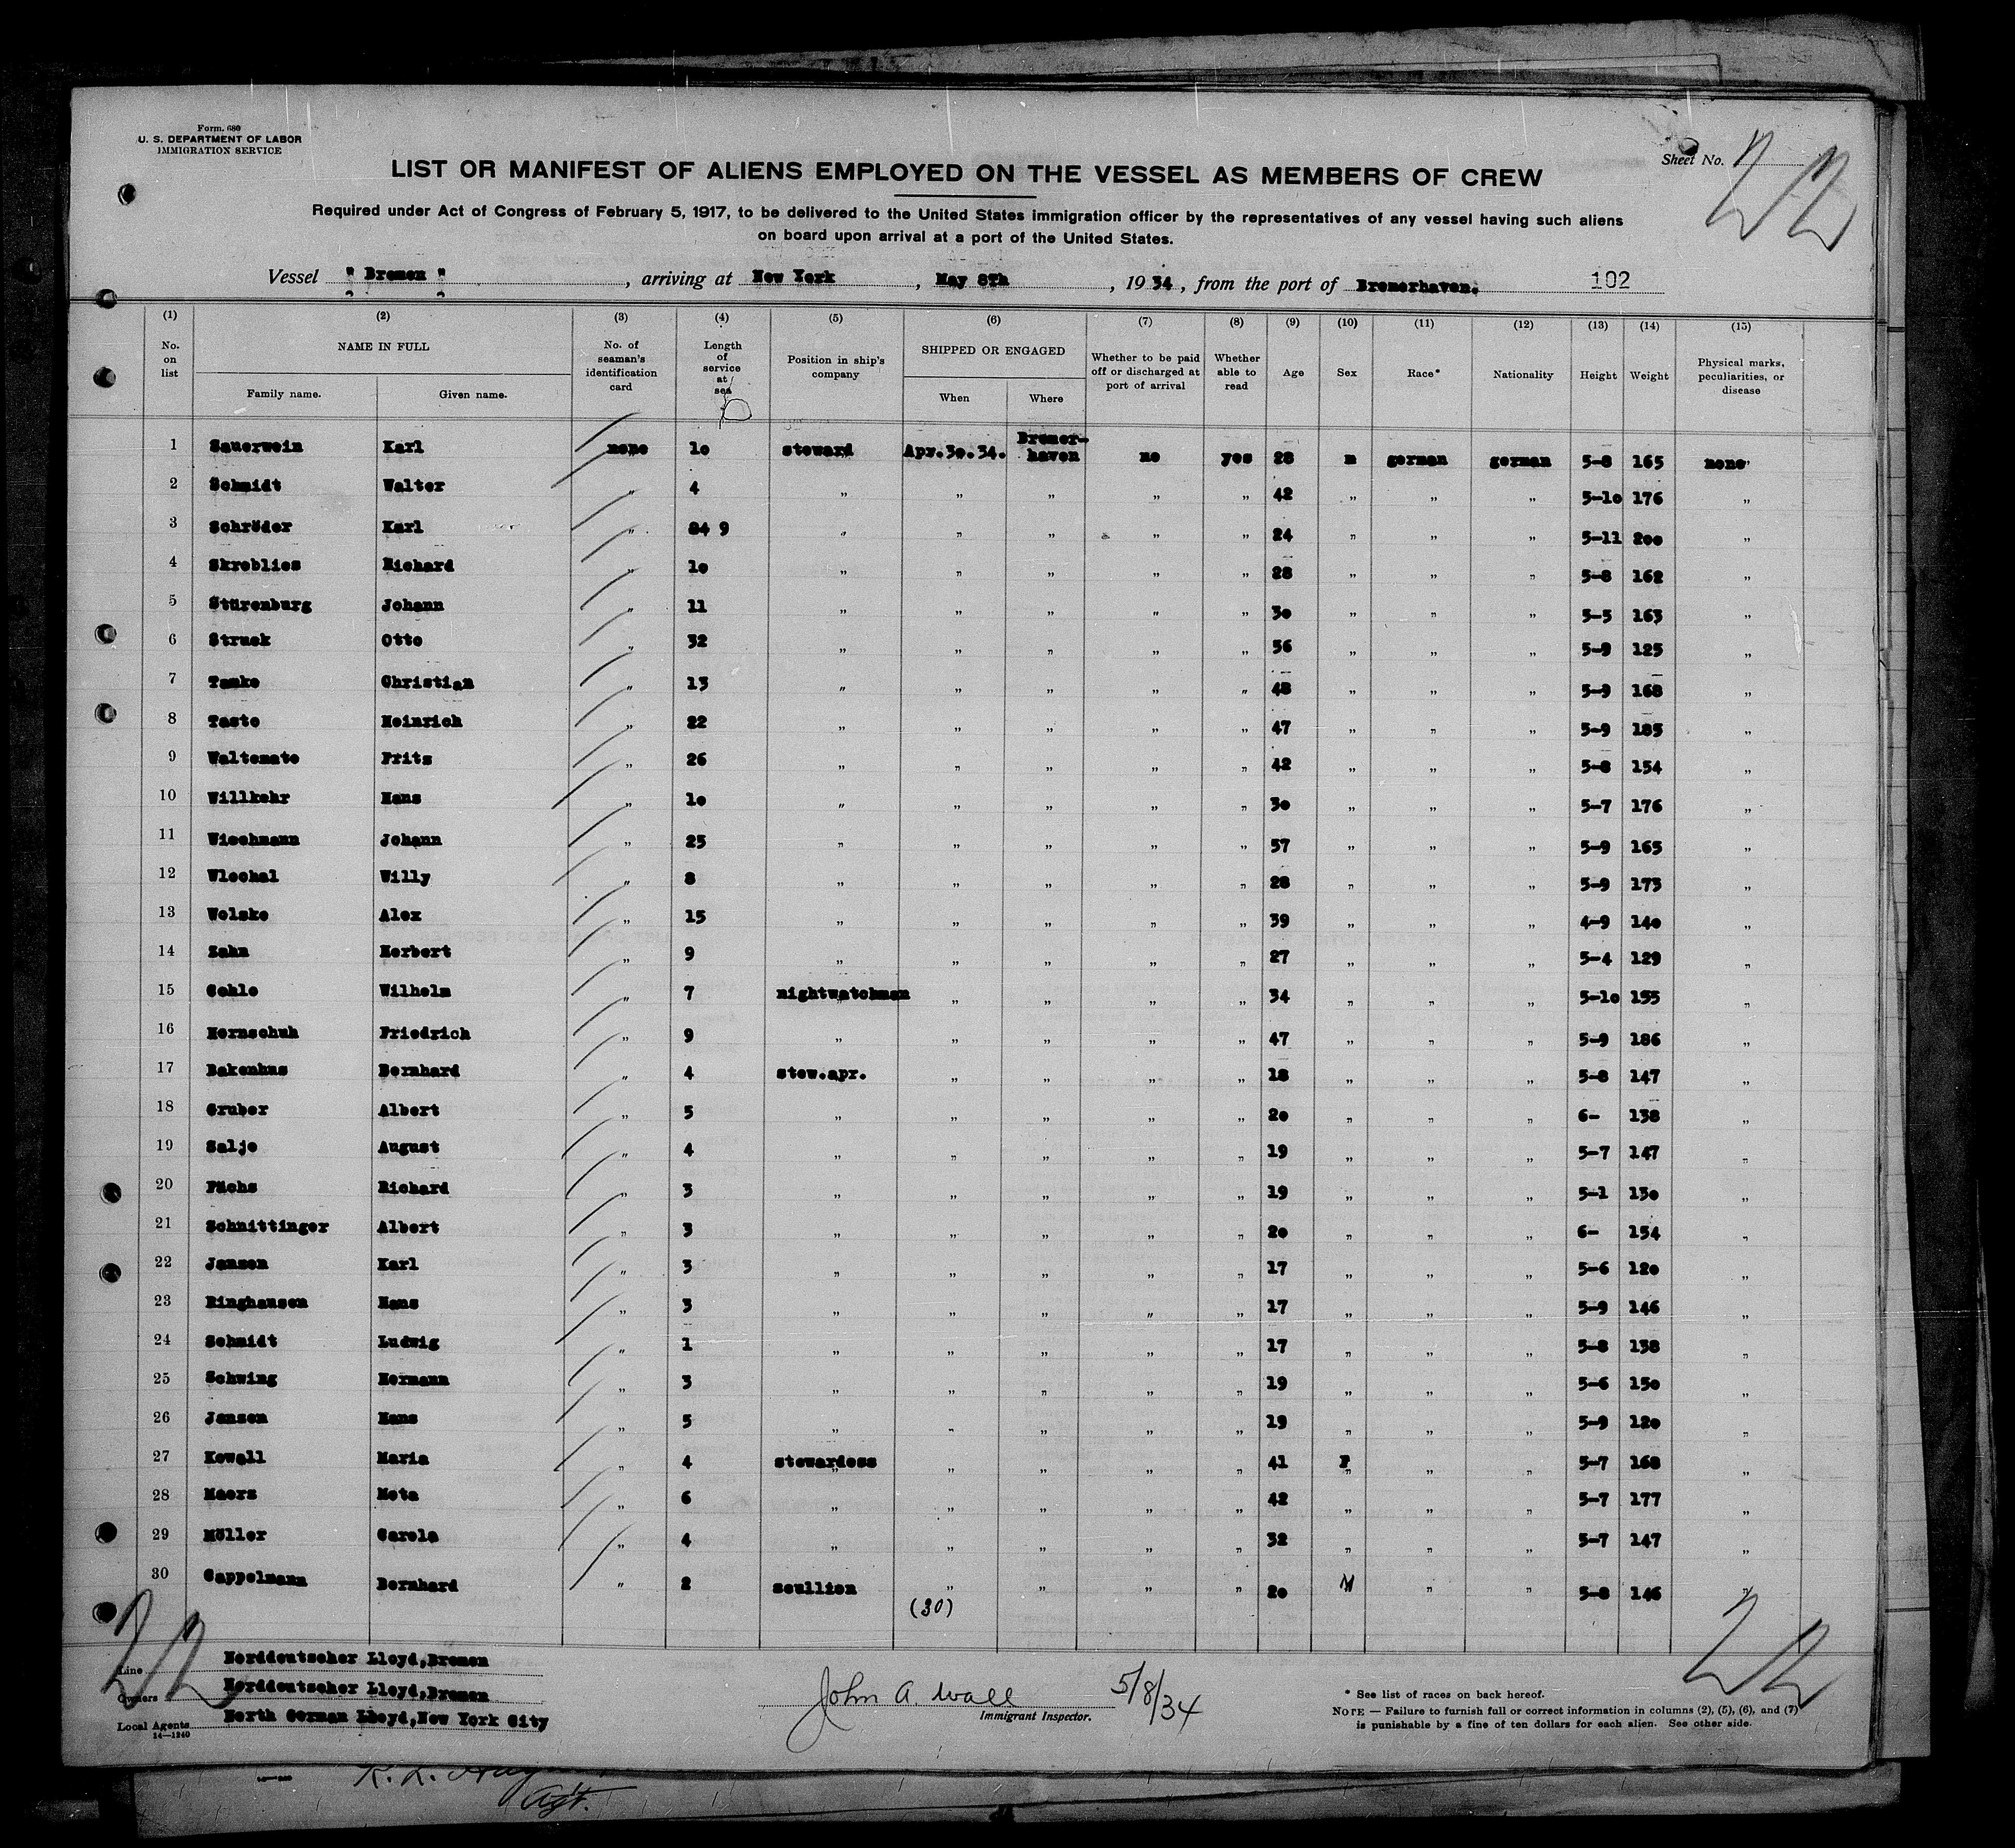 Form. 680
U. S. DEPARTMENT OF LABOR
IMMIGRATION SERVICE
Sheet No. 22
LIST OR MANIFEST OF ALIENS EMPLOYED ON THE VESSEL AS MEMBERS OF CREW
Required under Act of Congress of February 5, 1917, to be delivered to the United States immigration officer by the representatives of any vessel having such aliens
on board upon arrival at a port of the United States.
Vessel " Bremen ", arriving at New York, May 8th, 1934, from the port of Bremerhaven. 102
(1) (2) (3) (4) (5) (6) (7) (8) (9) (10) (11) (12) (13) (14) (15)
No. on list NAME IN FULL Family name. Given name. No. of seaman's identification card Length of service at sea Position in ship's company SHIPPED OR ENGAGED When Where Whether to be paid off or discharged at port of arrival Whether able to read Age Sex Race* Nationality Height Weight Physical marks, peculiarities, or disease
1 Sauerwein Karl none 10 steward Apr.30.34. Bremer-haven no yes 28 m german german 5-8 165 none
2 Schmidt Walter " 4 " " " " " 42 " " " 5-10 176 "
3 Schröder Karl " 84 9 " " " " " 24 " " " 5-11 200 "
4 Skroblies Richard " 10 " " " " " 28 " " " 5-8 162 "
5 Stürenburg Johann " 11 " " " " " 30 " " " 5-5 163 "
6 Struck Otto " 32 " " " " " 56 " " " 5-9 125 "
7 Tamke Christian " 13 " " " " " 48 " " " 5-9 168 "
8 Taste Heinrich " 22 " " " " " 47 " " " 5-9 185 "
9 Waltemate Fritz " 26 " " " " " 42 " " " 5-8 154 "
10 Willkehr Hans " 10 " " " " " 30 " " " 5-7 176 "
11 Wiechmann Johann " 25 " " " " " 57 " " " 5-9 165 "
12 Wlochal Willy " 8 " " " " " 28 " " " 5-9 173 "
13 Wolske Alex " 15 " " " " " 39 " " " 4-9 140 "
14 Zahn Herbert " 9 " " " " " 27 " " " 5-4 129 "
15 Gehle Wilhelm " 7 nightwatchman " " " " 34 " " " 5-10 155 "
16 Hernschuh Friedrich " 9 " " " " " 47 " " " 5-9 186 "
17 Bakenhus Bernhard " 4 stew.apr. " " " " 18 " " " 5-8 147 "
18 Gruber Albert " 5 " " " " " 20 " " " 6- 138 "
19 Salje August " 4 " " " " " 19 " " " 5-7 147 "
20 Füchs Richard " 3 " " " " " 19 " " " 5-1 130 "
21 Schnittinger Albert " 3 " " " " " 20 " " " 6- 154 "
22 Jansen Karl " 3 " " " " " 17 " " " 5-6 120 "
23 Ringhausen Hans " 3 " " " " " 17 " " " 5-9 146 "
24 Schmidt Ludwig " 1 " " " " " 17 " " " 5-8 138 "
25 Schwing Hermann " 3 " " " " " 19 " " " 5-6 150 "
26 Jansen Hans " 5 " " " " " 19 " " " 5-9 120 "
27 Kowall Maria " 4 stewardess " " " " 41 F " " 5-7 168 "
28 Maers Meta " 6 " " " " " 42 " " " 5-7 177 "
29 Möller Carola " 4 " " " " " 32 " " " 5-7 147 "
30 Cappelmann Bernhard " 2 scullion " " " " 20 M " " 5-8 146 "
(30)
22
22
Line Norddeutscher Lloyd,Bremen
Owners Norddeutscher Lloyd,Bremen
Local Agents North German Lloyd,New York City
14—1240
John A. Wall 5/8/34
Immigrant Inspector.
* See list of races on back hereof.
NOTE — Failure to furnish full or correct information in columns (2), (5), (6), and (7)
is punishable by a fine of ten dollars for each alien. See other side.
Agt.